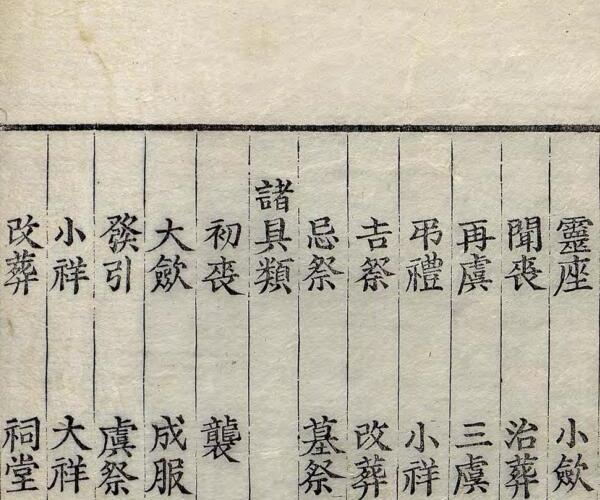 靈座 小斂
聞喪 治葬
再虞 三虞
弔禮 小祥
吉祭 改葬
忌祭 墓祭
諸具類
初喪 襲
大斂 成服
發引 虞祭
小祥 大祥
改葬 祠堂